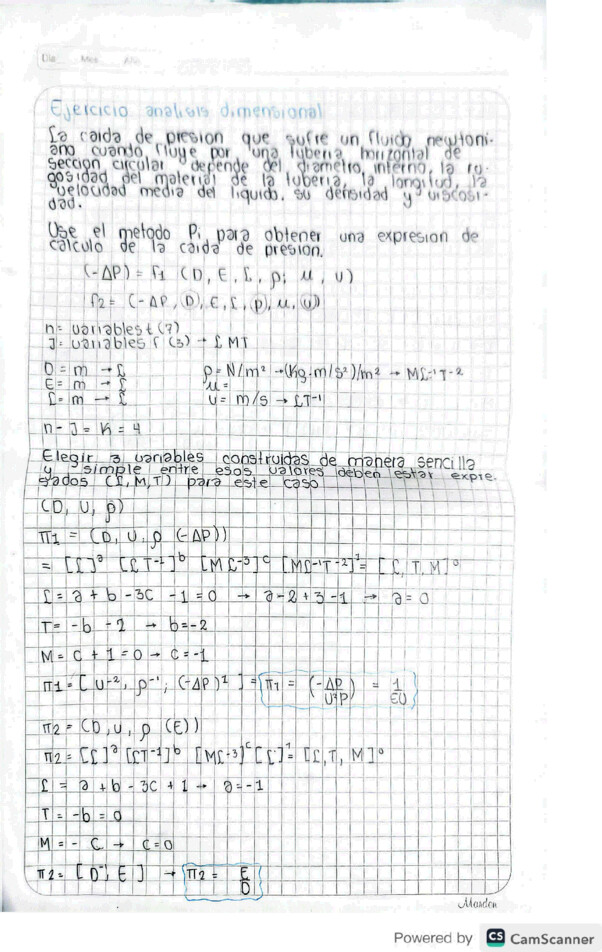 Día Mes Año
Ejercicio analisis dimensional
La caida de presion que sufre un fluido newtoni-
ano cuando fluye por una tuberia horizontal de
seccion circular depende del diametro, interno, la ru-
gosidad del material de la tuberia, la longitud, la
velocidad media del liquido, su densidad y viscosi-
dad.
Use el metodo Pi para obtener una expresion de
calculo de la caida de presion.
(-ΔP) = f1 (D, E, L, ρ; μ, v)
f2 = (-ΔP, D), E, L, (ρ), μ, (v))
n = variables t (7)
J = variables r (3) → L MT
D = m → L
E = m → L
L = m → L
ρ = N/m² → (Kg·m/s²)/m² → ML⁻¹T⁻²
μ =
v = m/s → LT⁻¹
n - J = K = 4
Elegir 3 variables construidas de manera sencilla
y simple entre esos valores deben estar expre-
sados (L, M, T) para este caso
(D, U, ρ)
π1 = (D, U, ρ (-ΔP))
= [L]ᵃ [LT⁻¹]ᵇ [ML⁻³]ᶜ [ML⁻¹T⁻²]¹ = [L, T, M]⁰
L = a + b - 3C - 1 = 0 → a - 2 + 3 - 1 → a = 0
T = -b - 2 → b = -2
M = C + 1 = 0 → C = -1
π1 = [U⁻², ρ⁻¹; (-ΔP)¹] = π1 = (-ΔP/U²P) = 1/EU
π2 = (D, U, ρ (E))
π2 = [L]ᵃ [LT⁻¹]ᵇ [ML⁻³]ᶜ [L]¹ = [L, T, M]⁰
L = a + b - 3C + 1 → a = -1
T = -b = 0
M = - C → C = 0
π2 = [D⁻¹, E] → π2 = E/D
Masden
Powered by CS CamScanner